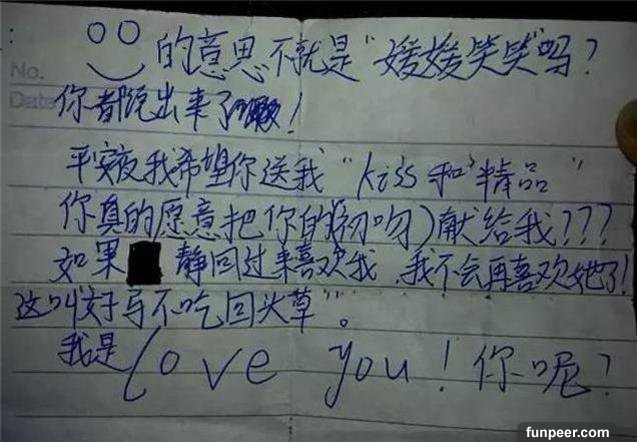 :
No.
Date
的意思不就是"媛媛笑笑"吗?
你都说出来了!
平安夜我希望你送我"kiss和精品"
你真的愿意把你的(初吻)献给我???
如果 静回过来喜欢我,我不会再喜欢她了!
这叫"好马不吃回头草"。
我是love you!你呢?
funpeer.com